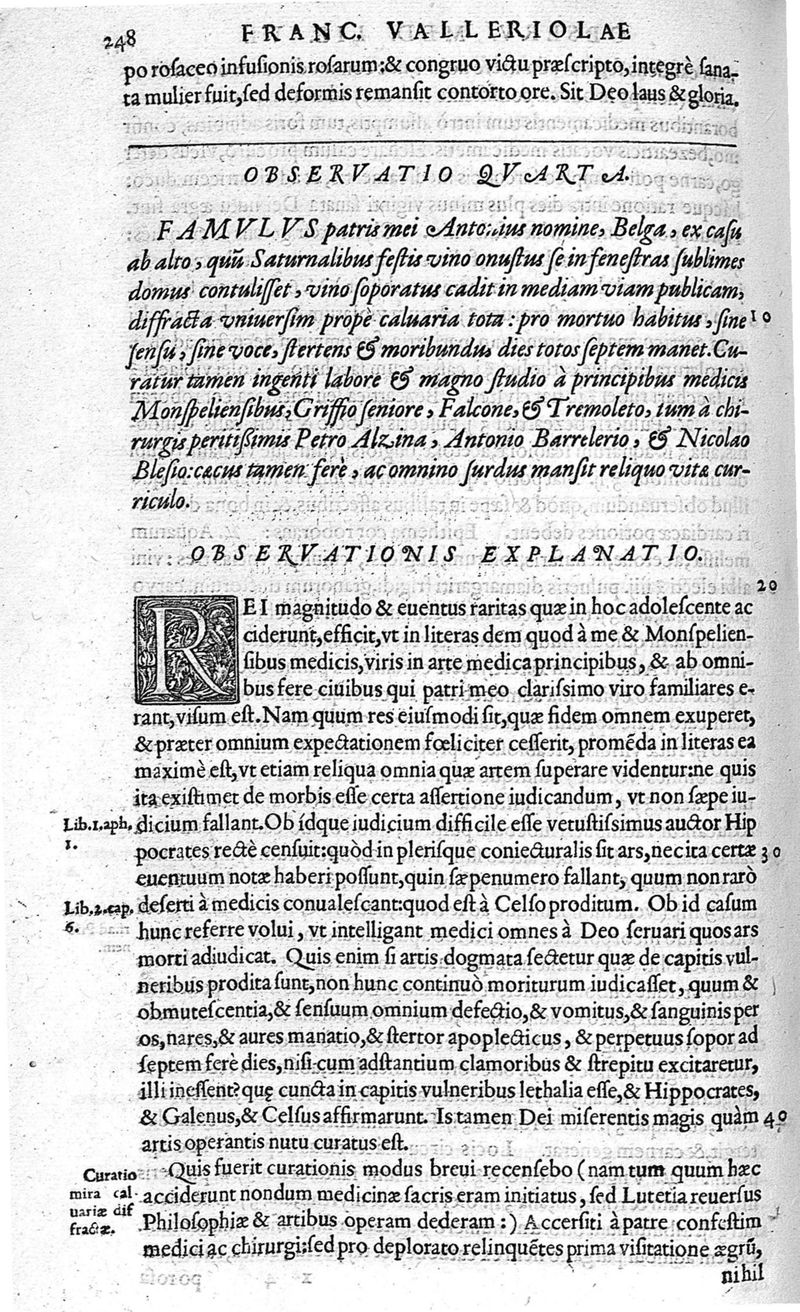 248 FRANC. VALLERIOLAE
po rosaceo infusionis rosarum:& congruo victu præscripto, integrè sana-
ta mulier fuit,sed deformis remansit contorto ore. Sit Deo laus & gloria.
OBSERVATIO QVARTA.
FAMVLVS patris mei Antonius nomine, Belga, ex casu
ab alto, quũ Saturnalibus festis vino onustus se in fenestras sublimes
domus contulisset, vino soporatus cadit in mediam viam publicam,
diffracta vniuersim propè caluaria tota: pro mortuo habitus, sine 10
sensu, sine voce, stertens & moribundus dies totos septem manet. Cu-
ratur tamen ingenti labore & magno studio à principibus medicis
Monspeliensibus, Griffio seniore, Falcone, & Tremoleto, tum à chi-
rurgis peritißimis Petro Alzina, Antonio Barrelerio, & Nicolao
Blesio: cæcus tamen ferè, ac omnino surdus mansit reliquo vitæ cur-
riculo.
OBSERVATIONIS EXPLANATIO.
20
REI magnitudo & euentus raritas quæ in hoc adolescente ac
ciderunt,efficit,vt in literas dem quod à me & Monspelien-
sibus medicis,viris in arte medica principibus, & ab omni-
bus fere ciuibus qui patri meo clarissimo viro familiares e-
rant,visum est. Nam quum res eiusmodi sit,quæ fidem omnem exuperet,
& præter omnium expectationem fœliciter cesserit, promẽda in literas ea
maximè est,vt etiam reliqua omnia quæ artem superare videntur:ne quis
ita existimet de morbis esse certa assertione iudicandum, vt non sæpe iu-
Lib.1.aph. dicium fallant. Ob ídque iudicium difficile esse vetustissimus auctor Hip
1. pocrates rectè censuit:quòd in plerisque coniecturalis sit ars,nec ita certæ 30
euentuum notæ haberi possunt,quin sæpenumero fallant, quum non rarò
Lib.2.cap. deserti à medicis conualescant:quod est à Celso proditum. Ob id casum
6. hunc referre volui, vt intelligant medici omnes à Deo seruari quos ars
morti adiudicat. Quis enim si artis dogmata sectetur quæ de capitis vul-
neribus prodita sunt,non hunc continuò moriturum iudicasset, quum &
obmutescentia,& sensuum omnium defectio,& vomitus,& sanguinis per
os,nares,& aures manatio,& stertor apoplecticus, & perpetuus sopor ad
septem ferè dies,nisi cum adstantium clamoribus & strepitu excitaretur,
illi inessent? quę cuncta in capitis vulneribus lethalia esse,& Hippocrates,
& Galenus,& Celsus affirmarunt. Is tamen Dei miserentis magis quàm 40
artis operantis nutu curatus est.
Curatio Quis fuerit curationis modus breui recensebo (nam tum quum hæc
mira cal acciderunt nondum medicinæ sacris eram initiatus, sed Lutetia reuersus
uariæ dif Philosophiæ & artibus operam dederam:) Accersiti à patre confestim
fractæ. medici ac chirurgi:sed pro deplorato relinquẽtes prima visitatione ægrũ,
nihil